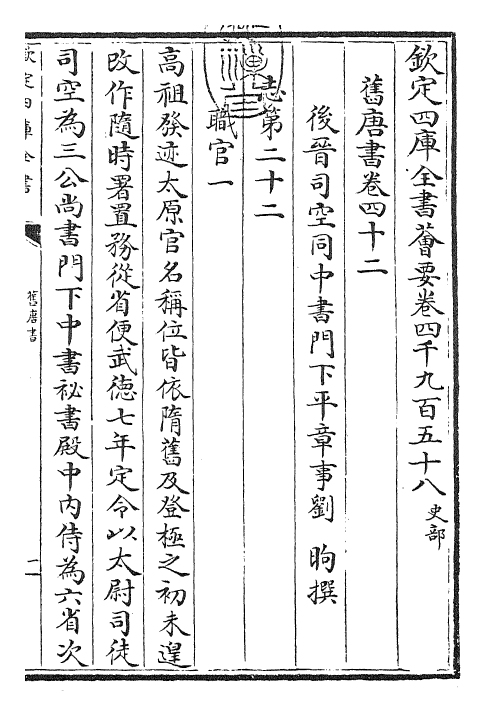 欽定四庫全書薈要卷四千九百五十八 史部
舊唐書卷四十二
後晉司空同中書門下平章事劉昫撰
志第二十二
職官一
高祖發迹太原官名稱位皆依隋舊及登極之初未遑
改作隨時署置務從省便武徳七年定令以太尉司徒
司空為三公尚書門下中書祕書殿中内侍為六省次
欽定四庫全書
舊唐書
一